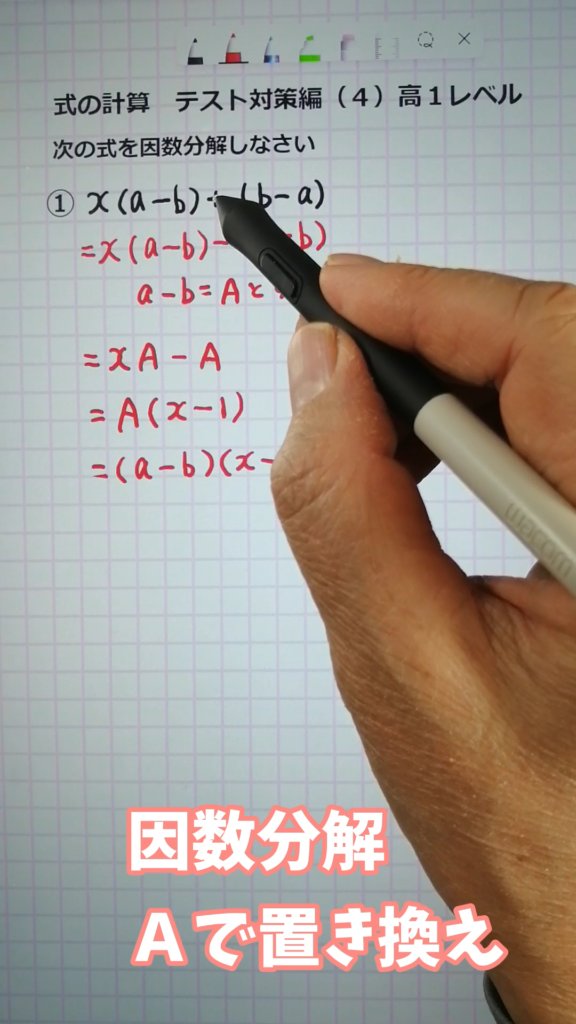 式の計算 テスト対策編（４）高１レベル
次の式を因数分解しなさい
① x(a-b)+(b-a)
=x(a-b)- b)
a-b=Aと
=xA-A
=A(x-1)
=(a-b)(x-
wacom
因数分解
Ａで置き換え